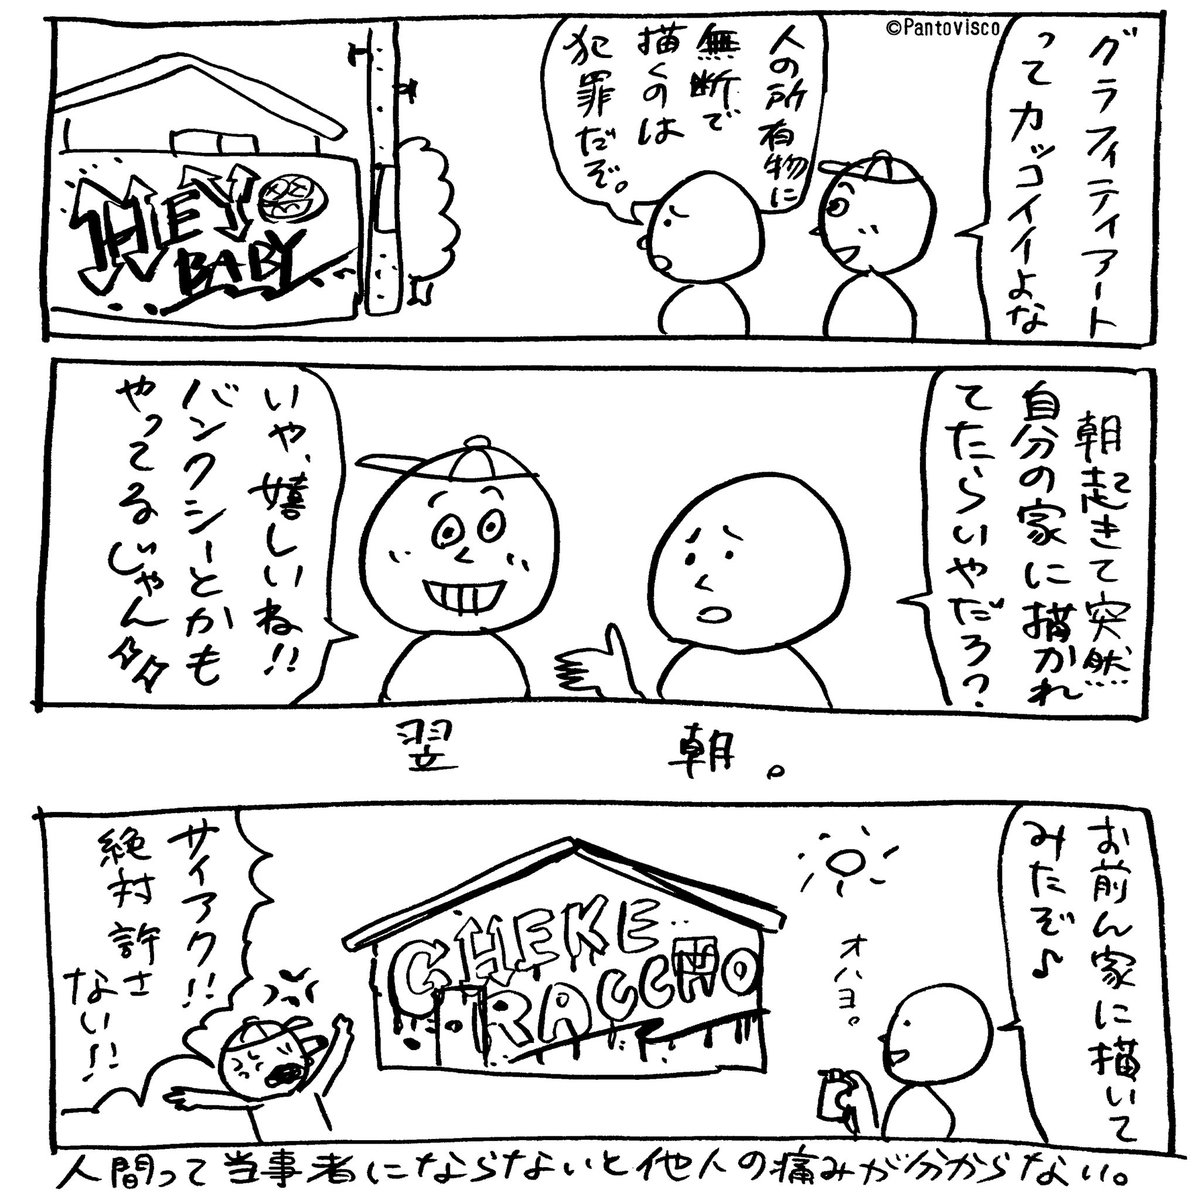 ©Pantovisco
グラフィティアート
ってカッコイイよな
人の所有物に
無断で
描くのは
犯罪だぞ。
HEY
BABY
朝起きて突然
自分の家に描かれ
てたらいやだろ?
いや、嬉しいね!!
バンクシーとかも
やってるじゃん
翌朝。
お前ん家に描いて
みたぞ♪
オハヨ。
CHEKE
RACCHO
サイアク!!
絶対許さ
ない!!
人間って当事者にならないと他人の痛みが分からない。